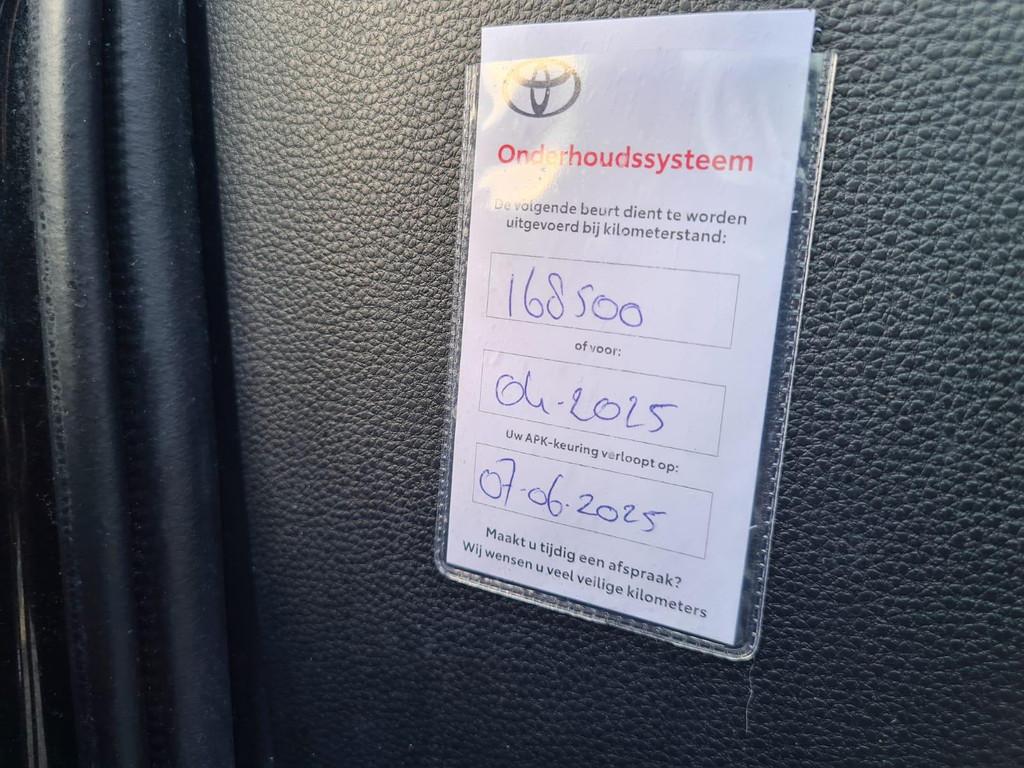 Onderhoudssysteem
De volgende beurt dient te worden
uitgevoerd bij kilometerstand:
168500
of voor:
04-2025
Uw APK-keuring verloopt op:
07-06-2025
Maakt u tijdig een afspraak?
Wij wensen u veel veilige kilometers